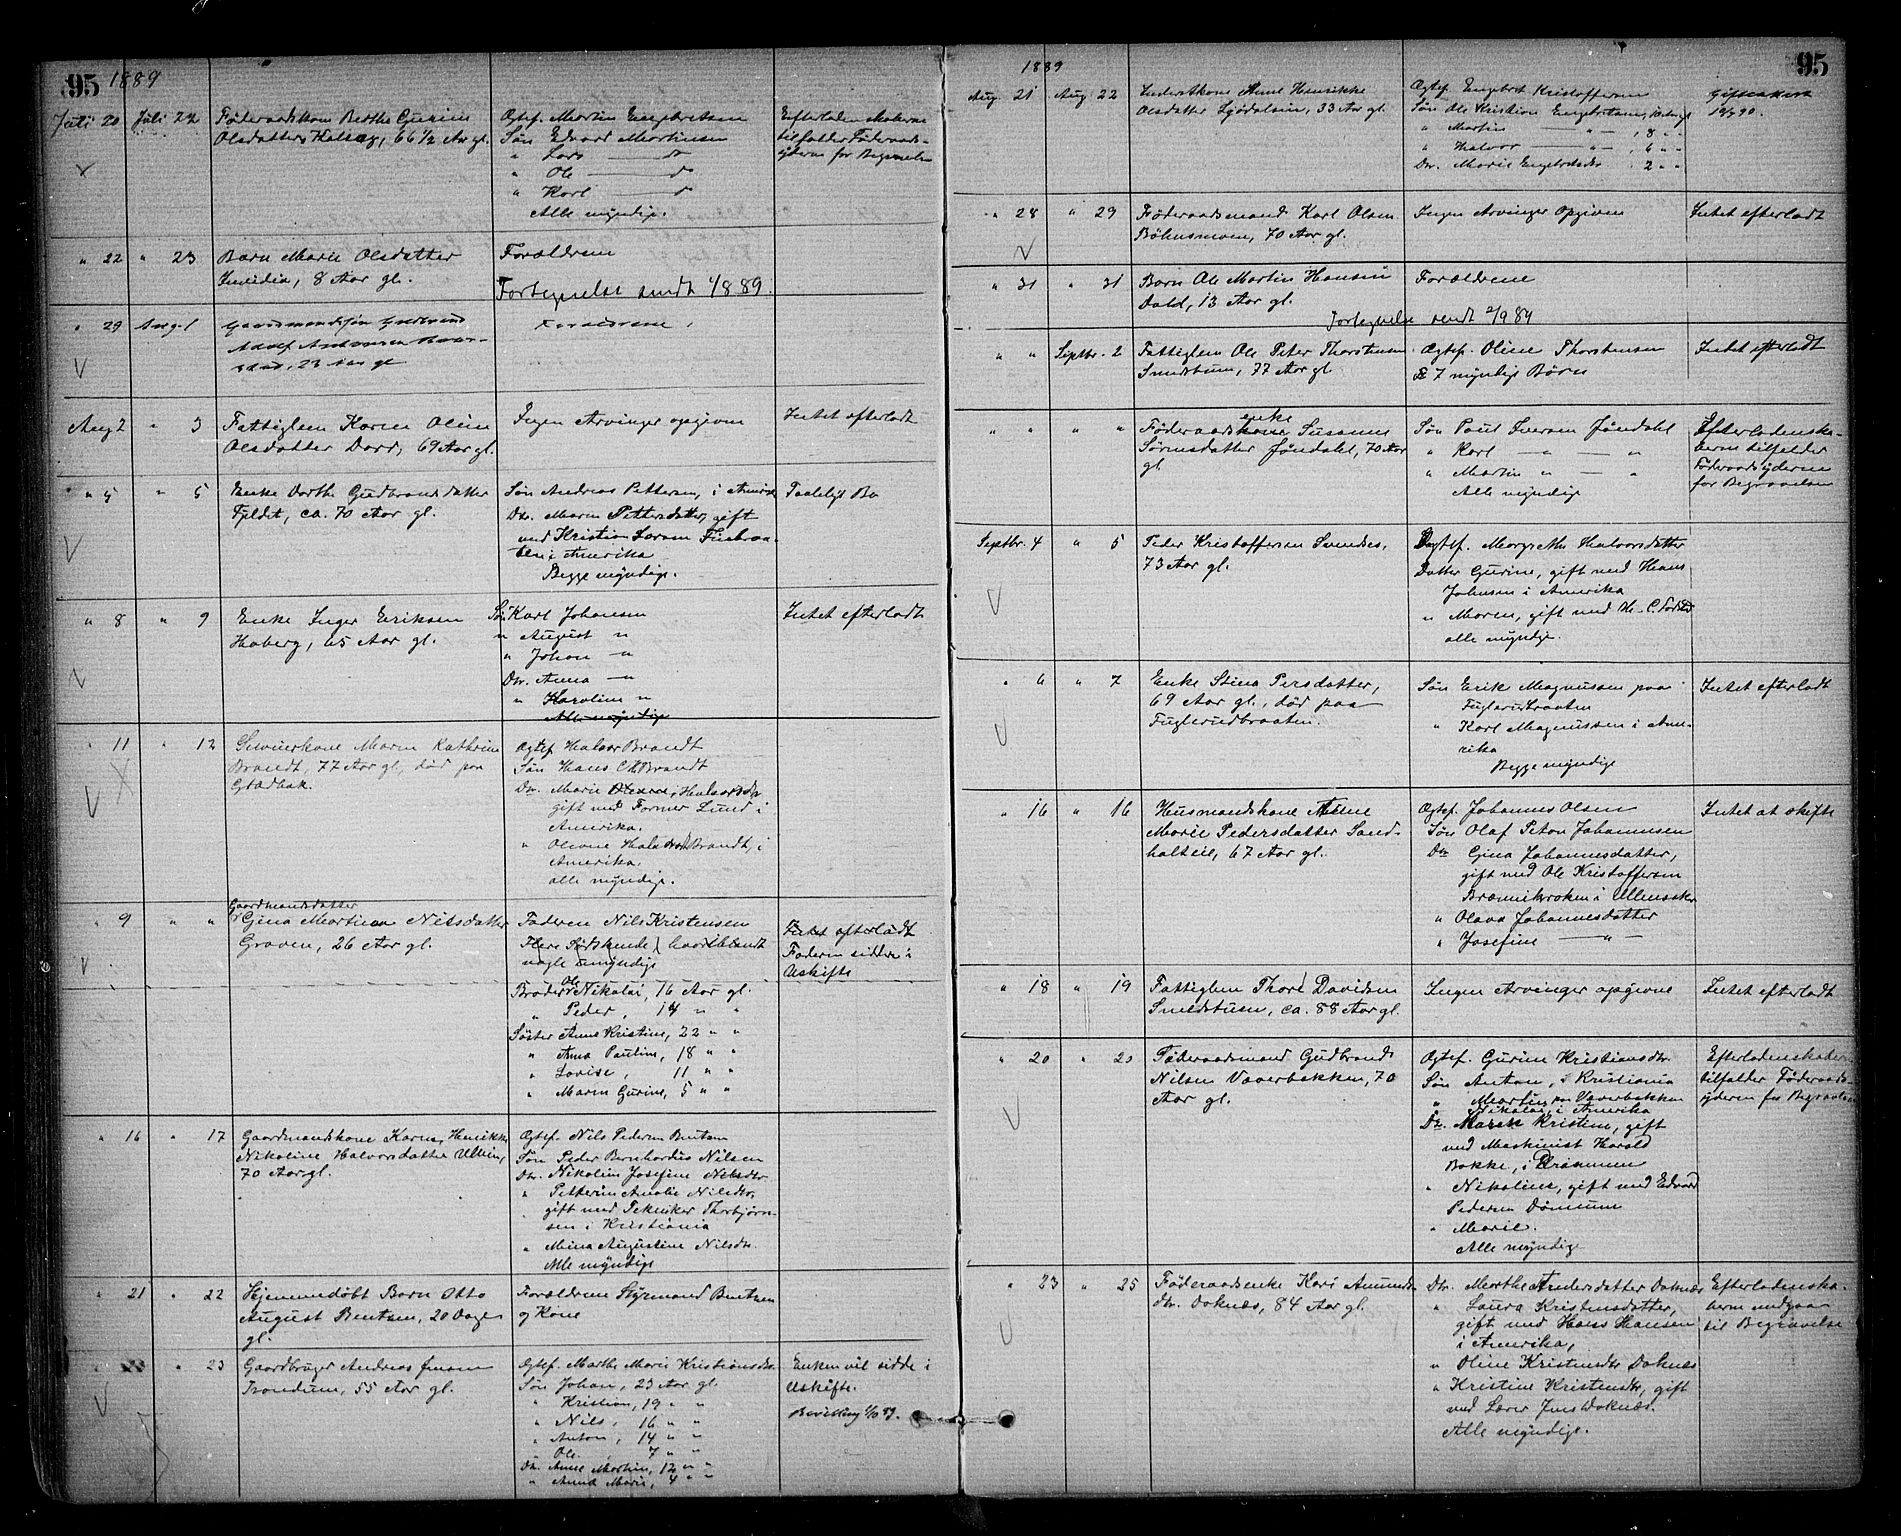 95 1889
Juli 20 Juli 22 Føderaadskone Berthe Gurine
Olsdatter Kalsæg, 66 1/2 Aar gl.
Ægtef. Martin Engebretsen
Søn Edvard Martinsen
" Lars — do
" Ole — do
" Karl — do
Alle myndige.
tilfalder Føderaads-
yderen for Begravelse
" 22 " 23 Barn Marie Olsdatter
8 Aar gl.
Forældrene
Fortegnelse sendt 1/8 89.
" 29 Aug. 1 Gaardmandssøn Gudbrand
Adolf Andersen
23 Aar gl
Forældrene
Aug 2 " 3 Fattiglem Karen Oline
Olsdatter Dorr, 69 Aar gl.
Ingen Arvinger opgiven
Intet efterladt
" 5 " 5 Enke Dorthe Gudbrandsdatter
Fjeldet, ca. 70 Aar gl.
Søn Andreas Pettersen, i Amerika
Dtr. Maren Pettersdatter, gift
med Kristian Larsen
i Amerika
Begge myndige.
" 8 " 9 Enke Inger Eriksen
Haberg, 65 Aar gl.
Søn Karl Johansen
" August "
" Johan — "
Dtr. Anna — "
" Karoline "
Alle myndige
Intet efterladt
" 11 " 12 Maren Kathrine
Brandt, 77 Aar gl, død paa
Gladbak.
Ægtef. Halvor Brandt
Søn Hans C. H. Brandt
Dtr. Marie Halvorsdtr
gift med Farmer Lund i
Amerika.
" Oleane Brandt, i
Amerika.
alle myndige.
" 9 " " Gaardmandsdatter
Gina Martinea Nilsdatter
Graven, 26 Aar gl.
Faderen Nils Kristensen
Flere Sødskende, hvoriblandt
nogle umyndige
Broder Ole Nikolai, 16 Aar gl.
" Peder, 14 " "
Søster Anne Kristine, 22 " "
" Anna Pauline, 18 " "
" Lovise, 11 " "
" Maren Gurine, 5 " "
Intet efterladt
Faderen sidder i
Uskifte
" 16 " 17 Gaardmandskone Karen Henrikke
Nikoline Halvorsdatter Ullern,
70 Aar gl.
Ægtef. Nils Pedersen Bentsen
Søn Peder Bernhardus Nilsen
Dtr. Nikoline Josefine Nilsdtr.
" Petterine Amalie Nilsdtr,
gift med Tekniker Thorbjørn-
sen i Kristiania
" Mina Augustine Nilsdtr.
Alle myndige
" 21 " 22 Hjemmedøbt Barn Otto
August Bentsen, 20 Dage
gl.
Forældrene Styrmand Bentsen
og Kone
" 23 Gaardbruger Andreas Jensen
Trondum, 55 Aar gl.
Ægtef. Marthe Marie Kristiansdtr.
Søn Johan, 23 Aar gl.
" Kristian, 19 " "
" Nils, 16 " "
" Anton, 14 " "
" Ole 7 " "
Dtr. Anne Martine, 12 " "
" Anna Marie, 4 " "
Enken vil sidde i
Uskifte.
1889 95
Aug. 21 Aug 22 Anne Henrikke
Olsdatter Ljødalseie, 33 Aar gl.
Ægtef. Engebret Kristoffersen
Søn Ole Kristian Engebretsen, 10 Aar gl
" Martin — " — , 8 " "
" Halvor — " — , 6 " "
Dtr. Marie Engebretsdtr 2 " "
" 28 " 29 Føderaadsmand Karl Olsen
Bøhnsmoen, 70 Aar gl.
Ingen Arvinger Opgiven
Intet efterladt
" 31 " 31 Barn Ole Martin Hansen
Dald, 13 Aar gl.
Forældrene
Fortegnelse sendt 2/9 89
" " Septbr. 2 Fattiglem Ole Peter Thorstensen
Smedstuen, 77 Aar gl
Ægtef. Oline Thorstensen
7 myndige Børn
Intet efterladt
" " " " Føderaadsenke Susanne
Sørensdatter Jøndahl, 70 Aar
gl
Søn Paul Iversen Jøndahl
" Karl — " — "
" Martin " — "
Alle myndige
Efterladenska-
berne tilfalder
Føderaadsyderen
for Begravelsen
Septbr. 4 " 5 Peder Kristoffersen Sundset,
73 Aar gl.
Ægtef. Margrethe Halvorsdatter
Datter Gurine, gift med Hans
Johnsen i Amerika
" Maren, gift med H. C.
alle myndige.
" 6 " 7 Enke Stina Persdatter,
69 Aar gl., død paa
Fuglerudbraaten.
Søn Erik Magnussen paa
Fuglerudbraaten
" Karl Magnussen i Ame-
rika
Begge myndige
Intet efterladt
" 16 " 16 Husmandskone Anne
Marie Pedersdatter Sand-
holteie, 67 Aar gl.
Ægtef. Johannes Olsen
Søn Olaf Peter Johannesen
Dtr Gina Johannesdatter,
gift med Ole Kristoffersen
i Ullensaker
" Olava Johannesdatter
" Josefine — " —
Intet at skifte
" 18 " 19 Fattiglem Thore Davidsen
Smedstuen, ca. 88 Aar gl.
Ingen Arvinger opgivne
Intet efterladt
" 20 " 20 Føderaadsmand Gudbrand
Nilsen Vaaerbakken, 70
Aar gl.
Ægtef. Gurine Kristiansdtr.
Søn Anton, i Kristiania
" Martin paa Vaaerbakken
" Nikolai, i Amerika
Dtr. Maren Kristine, gift
med Maskinist Harald
Bakke, i Drammen
" Nikoline, gift med Edvard
Pedersen Dømum
" Marie.
Alle myndige
Efterladenskaberne
tilfalder Føderaads-
yderen for Begravelsen
" 23 " 25 Føderaadsenke Kari Amunds-
dtr. Doknæs, 84 Aar gl.
Dtr. Marthe Andersdatter Doknæs
" Laura Kristensdatter,
gift med Hans Hansen
i Amerika,
" Oline Kristensdtr Doknæs
" Kristine Kristensdtr, gift
med Lærer Jens Doknæs.
Alle myndige.
Efterladenska-
berne medgaar
til Begravelse